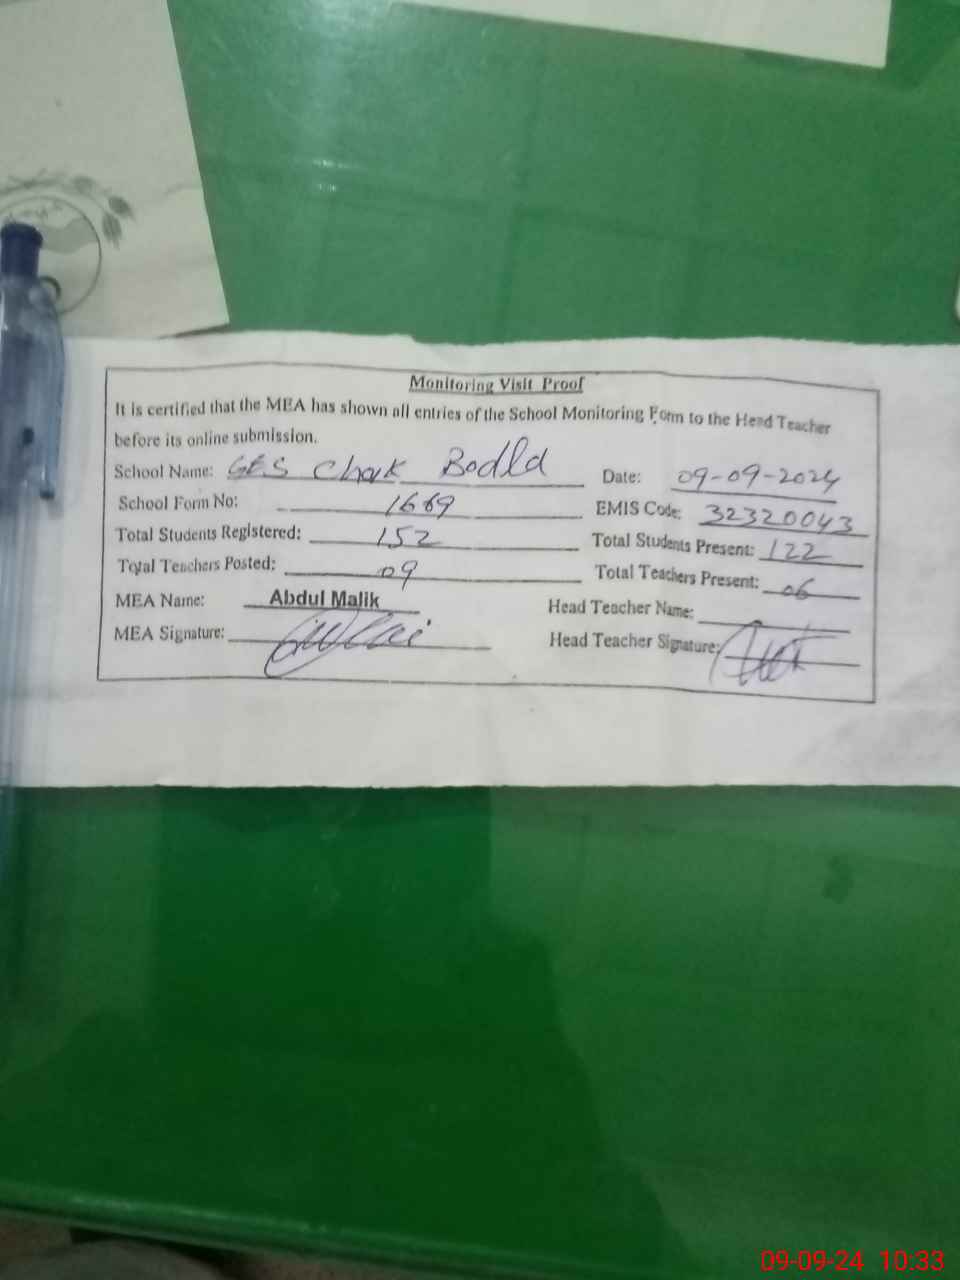 Monitoring Visit Proof
It is certified that the MEA has shown all entries of the School Monitoring Form to the Head Teacher
before its online submission.
School Name: GES Chak Bodla Date: 09-09-2024
School Form No: 1669 EMIS Code: 32320043
Total Students Registered: 152 Total Students Present: 122
Total Teachers Posted: 09 Total Teachers Present: 06
MEA Name: Abdul Malik Head Teacher Name:
MEA Signature: Head Teacher Signature:
09-09-24 10:33